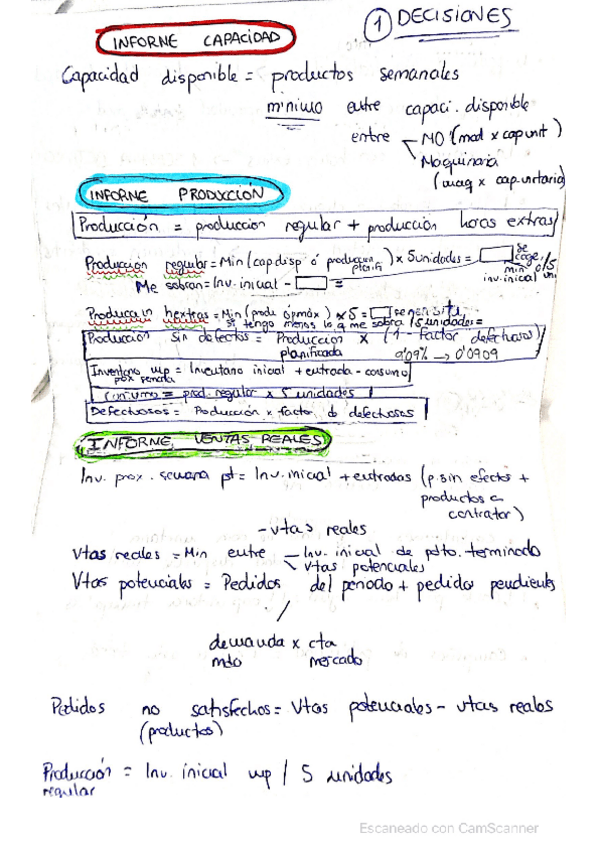 ① DECISIONES
INFORME CAPACIDAD
Capacidad disponible = productos semanales
mínimo entre capaci. disponible
entre MO (mod x cap unit)
Maquinaria
(maq x cap. unitaria)
INFORME PRODUCCIÓN
Producción = produccion regular + producción horas extras
Producción regular = Min (cap disp ó produccion planifi) x 5 unidades =
Me sobran = Inv. inicial -
inv. inicial
Producción hextras = Min (
si tengo menos lo q me sobra / 5 unidades =
Producción sin defectos = Producción planificada x (1 - factor defectuoso)
9'09% → 0'0909
Inventario mp = Inventario inicial + entrada - consumo
prox semana
consumo = prod. regular x 5 unidades
Defectuosos = Producción x factor de defectuosos
INFORME VENTAS REALES
Inv. prox. semana pt = Inv. inicial + entradas (p. sin efectos +
productos a
contratar)
- vtas reales
Vtas reales = Min entre Inv. inicial de pdto. terminado
vtas potenciales
Vtas potenciales = Pedidos del periodo + pedidos pendientes
demanda x cta
mdo mercado
Pedidos no satisfechos = Vtas potenciales - vtas reales
(productos)
Producción = Inv. inicial mp / 5 unidades
regular
Escaneado con CamScanner